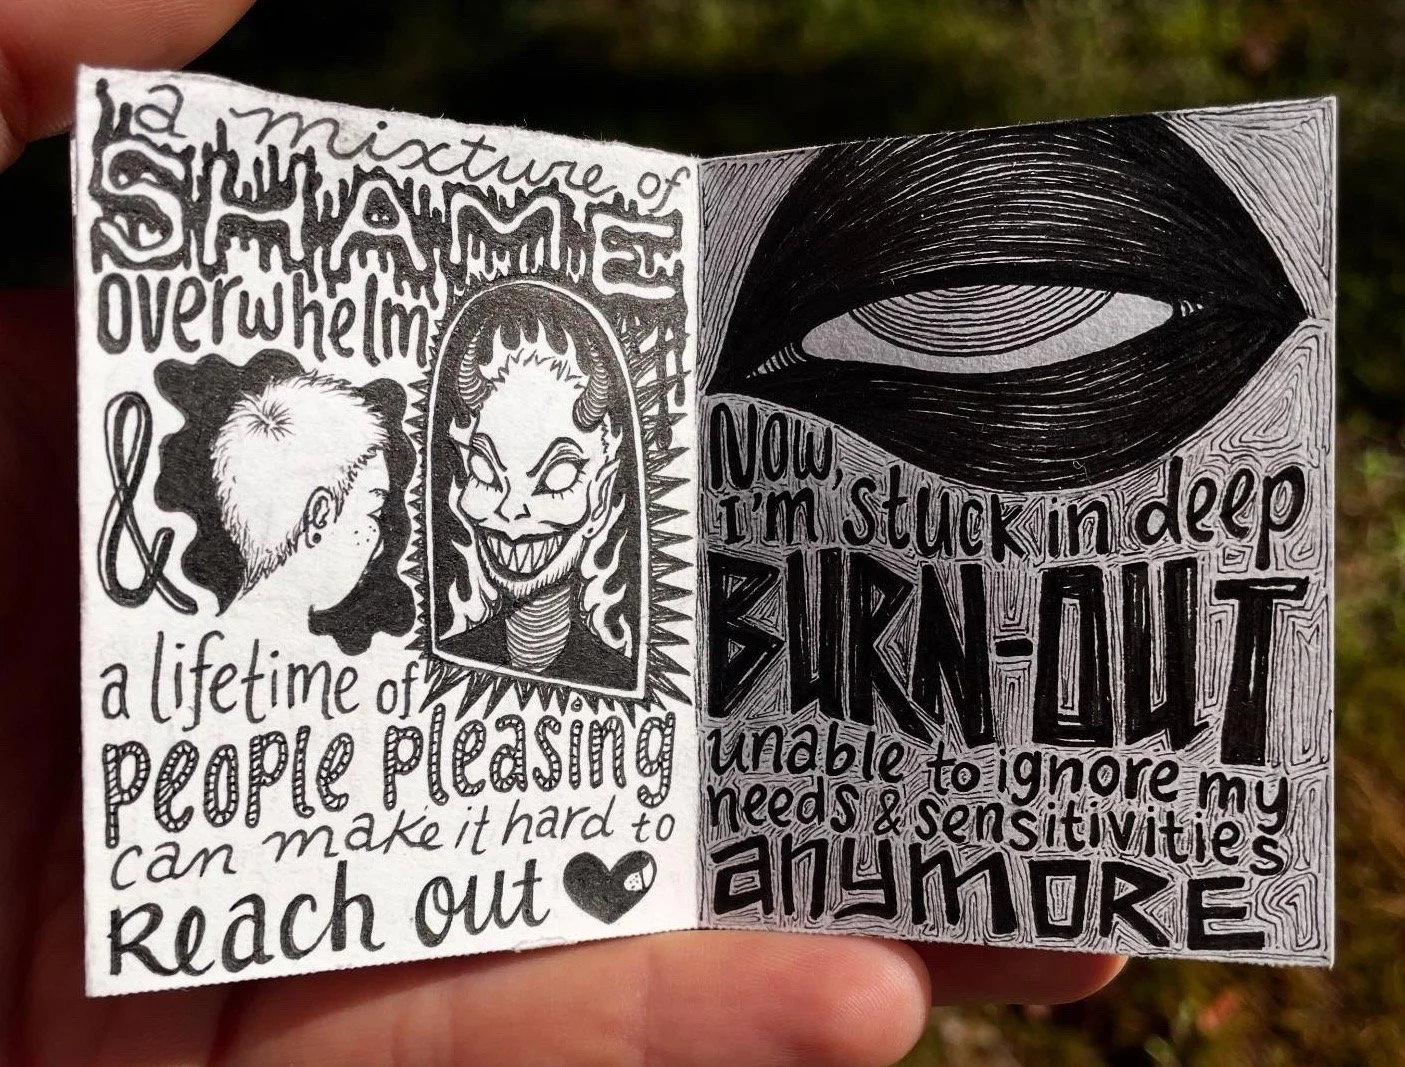 a mixture of
SHAME
overwhelm
&
a lifetime of
people pleasing
can make it hard to
Reach out
Now,
I'm stuck in deep
BURN-OUT
unable to ignore my
needs & sensitivities
anymore